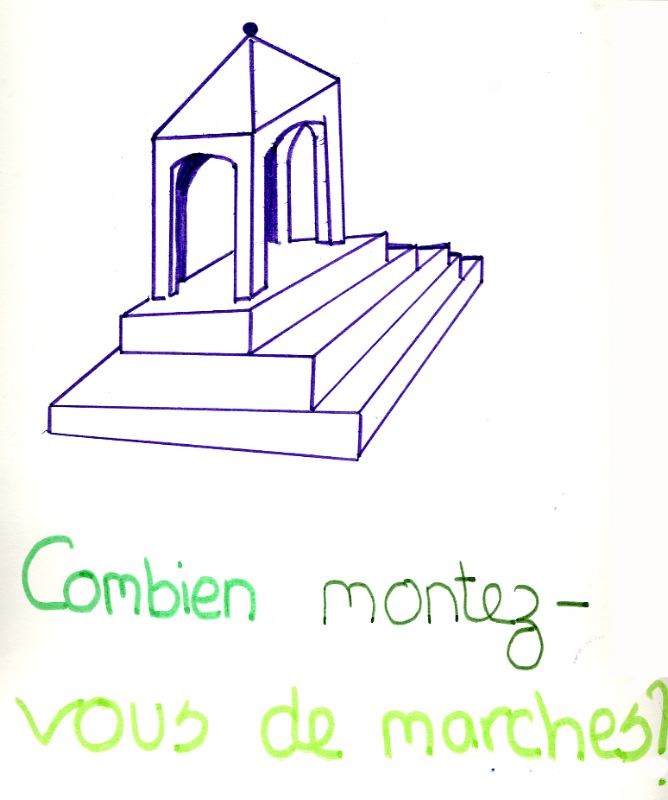 Combien montez-
vous de marches?